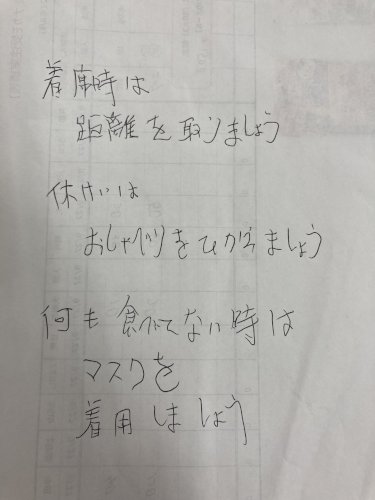 着席時は
距離を取りましょう
休けいは
おしゃべりをひかえましょう
何も食べてない時は
マスクを
着用しましょう